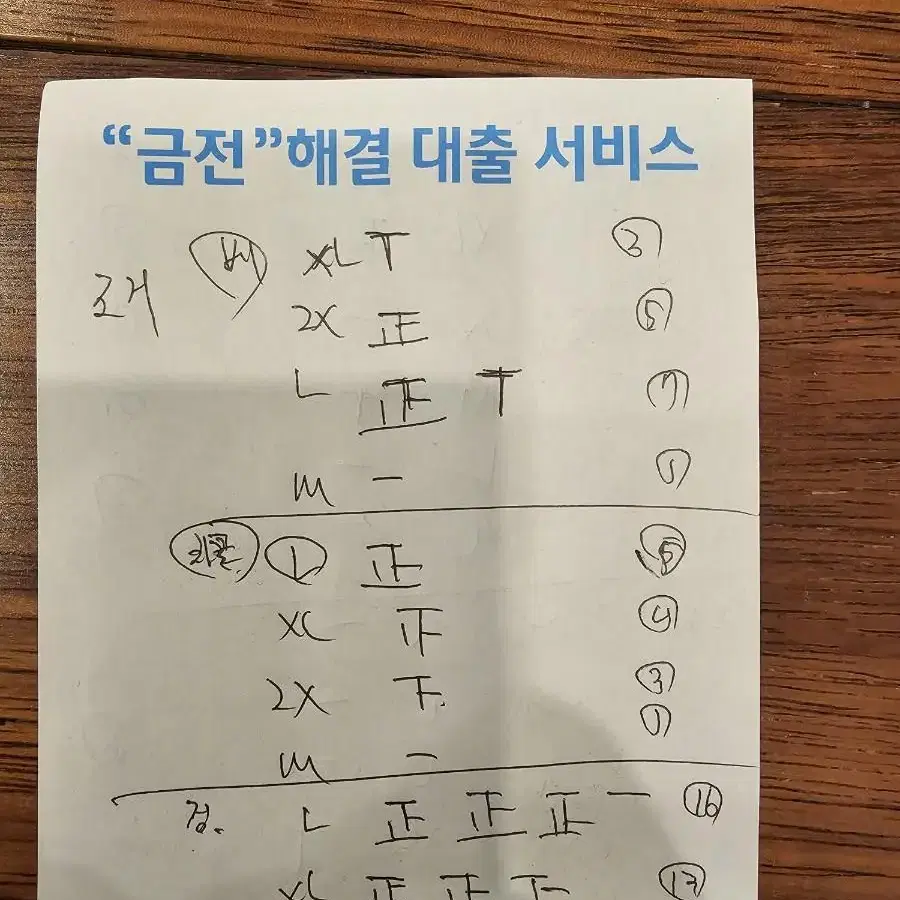 “금전”해결 대출 서비스
조거 베 XL T ③
2X 正 ⑤
L 正 T ⑦
M 一 ①
L 正 ⑤
XL 正 ④
2X 下 ③
M 一 ①
검. L 正 正 正 一 ⑯
XL 正 正 下 ⑬